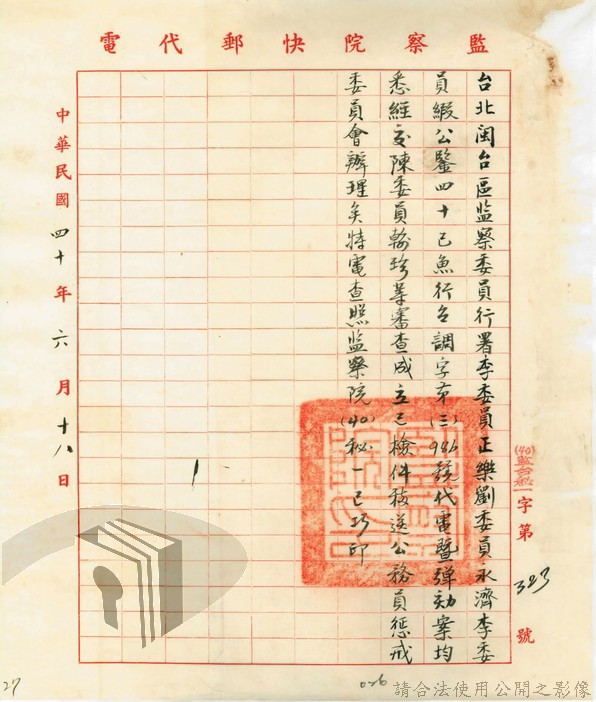 監察院快郵代電
(40)監台秘一字第323號
台北闽台區监察委員行署李委員正樂劉委員永濟李委
員緞公鑒四十巳魚行台調字第(三)986號代電暨弹劾案均
悉經交陳委員翰珍等審查成立已檢件移送公務員惩戒
委員會辦理矣特電查照监察院(40)秘一巳巧印
中華民國四十年六月十八日
27
026
請合法使用公開之影像